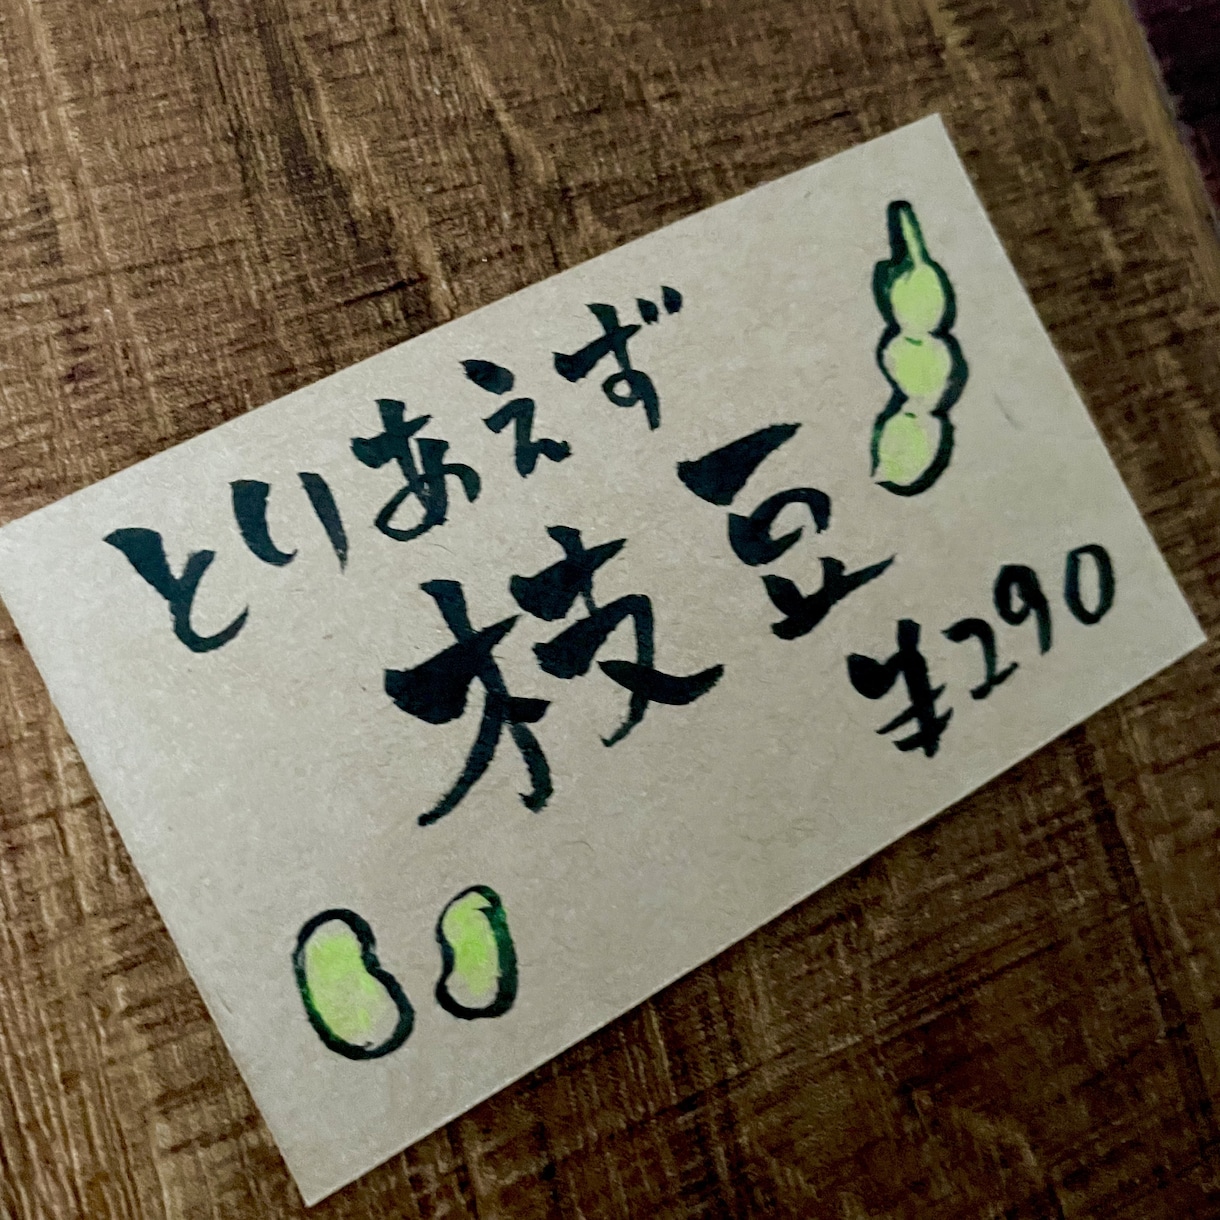 とりあえず
枝豆
¥290